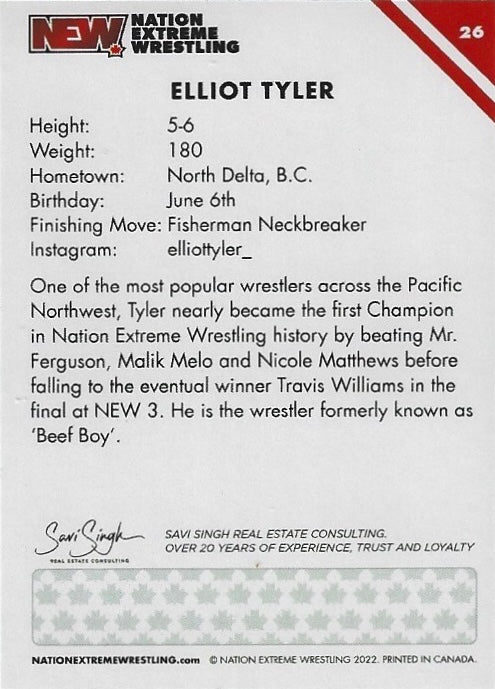 NEW NATION
EXTREME
WRESTLING
26
ELLIOT TYLER
Height: 5-6
Weight: 180
Hometown: North Delta, B.C.
Birthday: June 6th
Finishing Move: Fisherman Neckbreaker
Instagram: elliottyler_
One of the most popular wrestlers across the Pacific
Northwest, Tyler nearly became the first Champion
in Nation Extreme Wrestling history by beating Mr.
Ferguson, Malik Melo and Nicole Matthews before
falling to the eventual winner Travis Williams in the
final at NEW 3. He is the wrestler formerly known as
‘Beef Boy’.
Savi Singh
REAL ESTATE CONSULTING
SAVI SINGH REAL ESTATE CONSULTING.
OVER 20 YEARS OF EXPERIENCE, TRUST AND LOYALTY
NATIONEXTREMEWRESTLING.com © NATION EXTREME WRESTLING 2022. PRINTED IN CANADA.